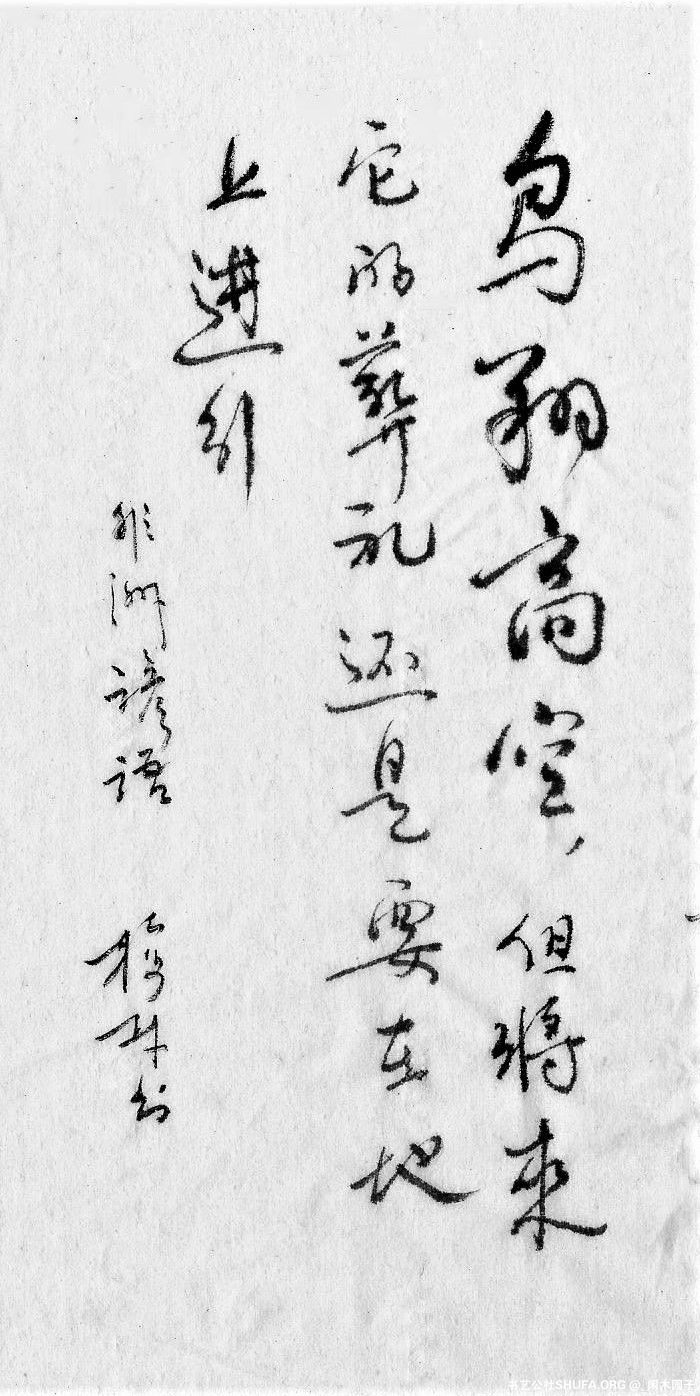 鸟翔高空，但将来
它的葬礼还是要在地
上进行
非洲谚语
书艺公社SHUFA.ORG @